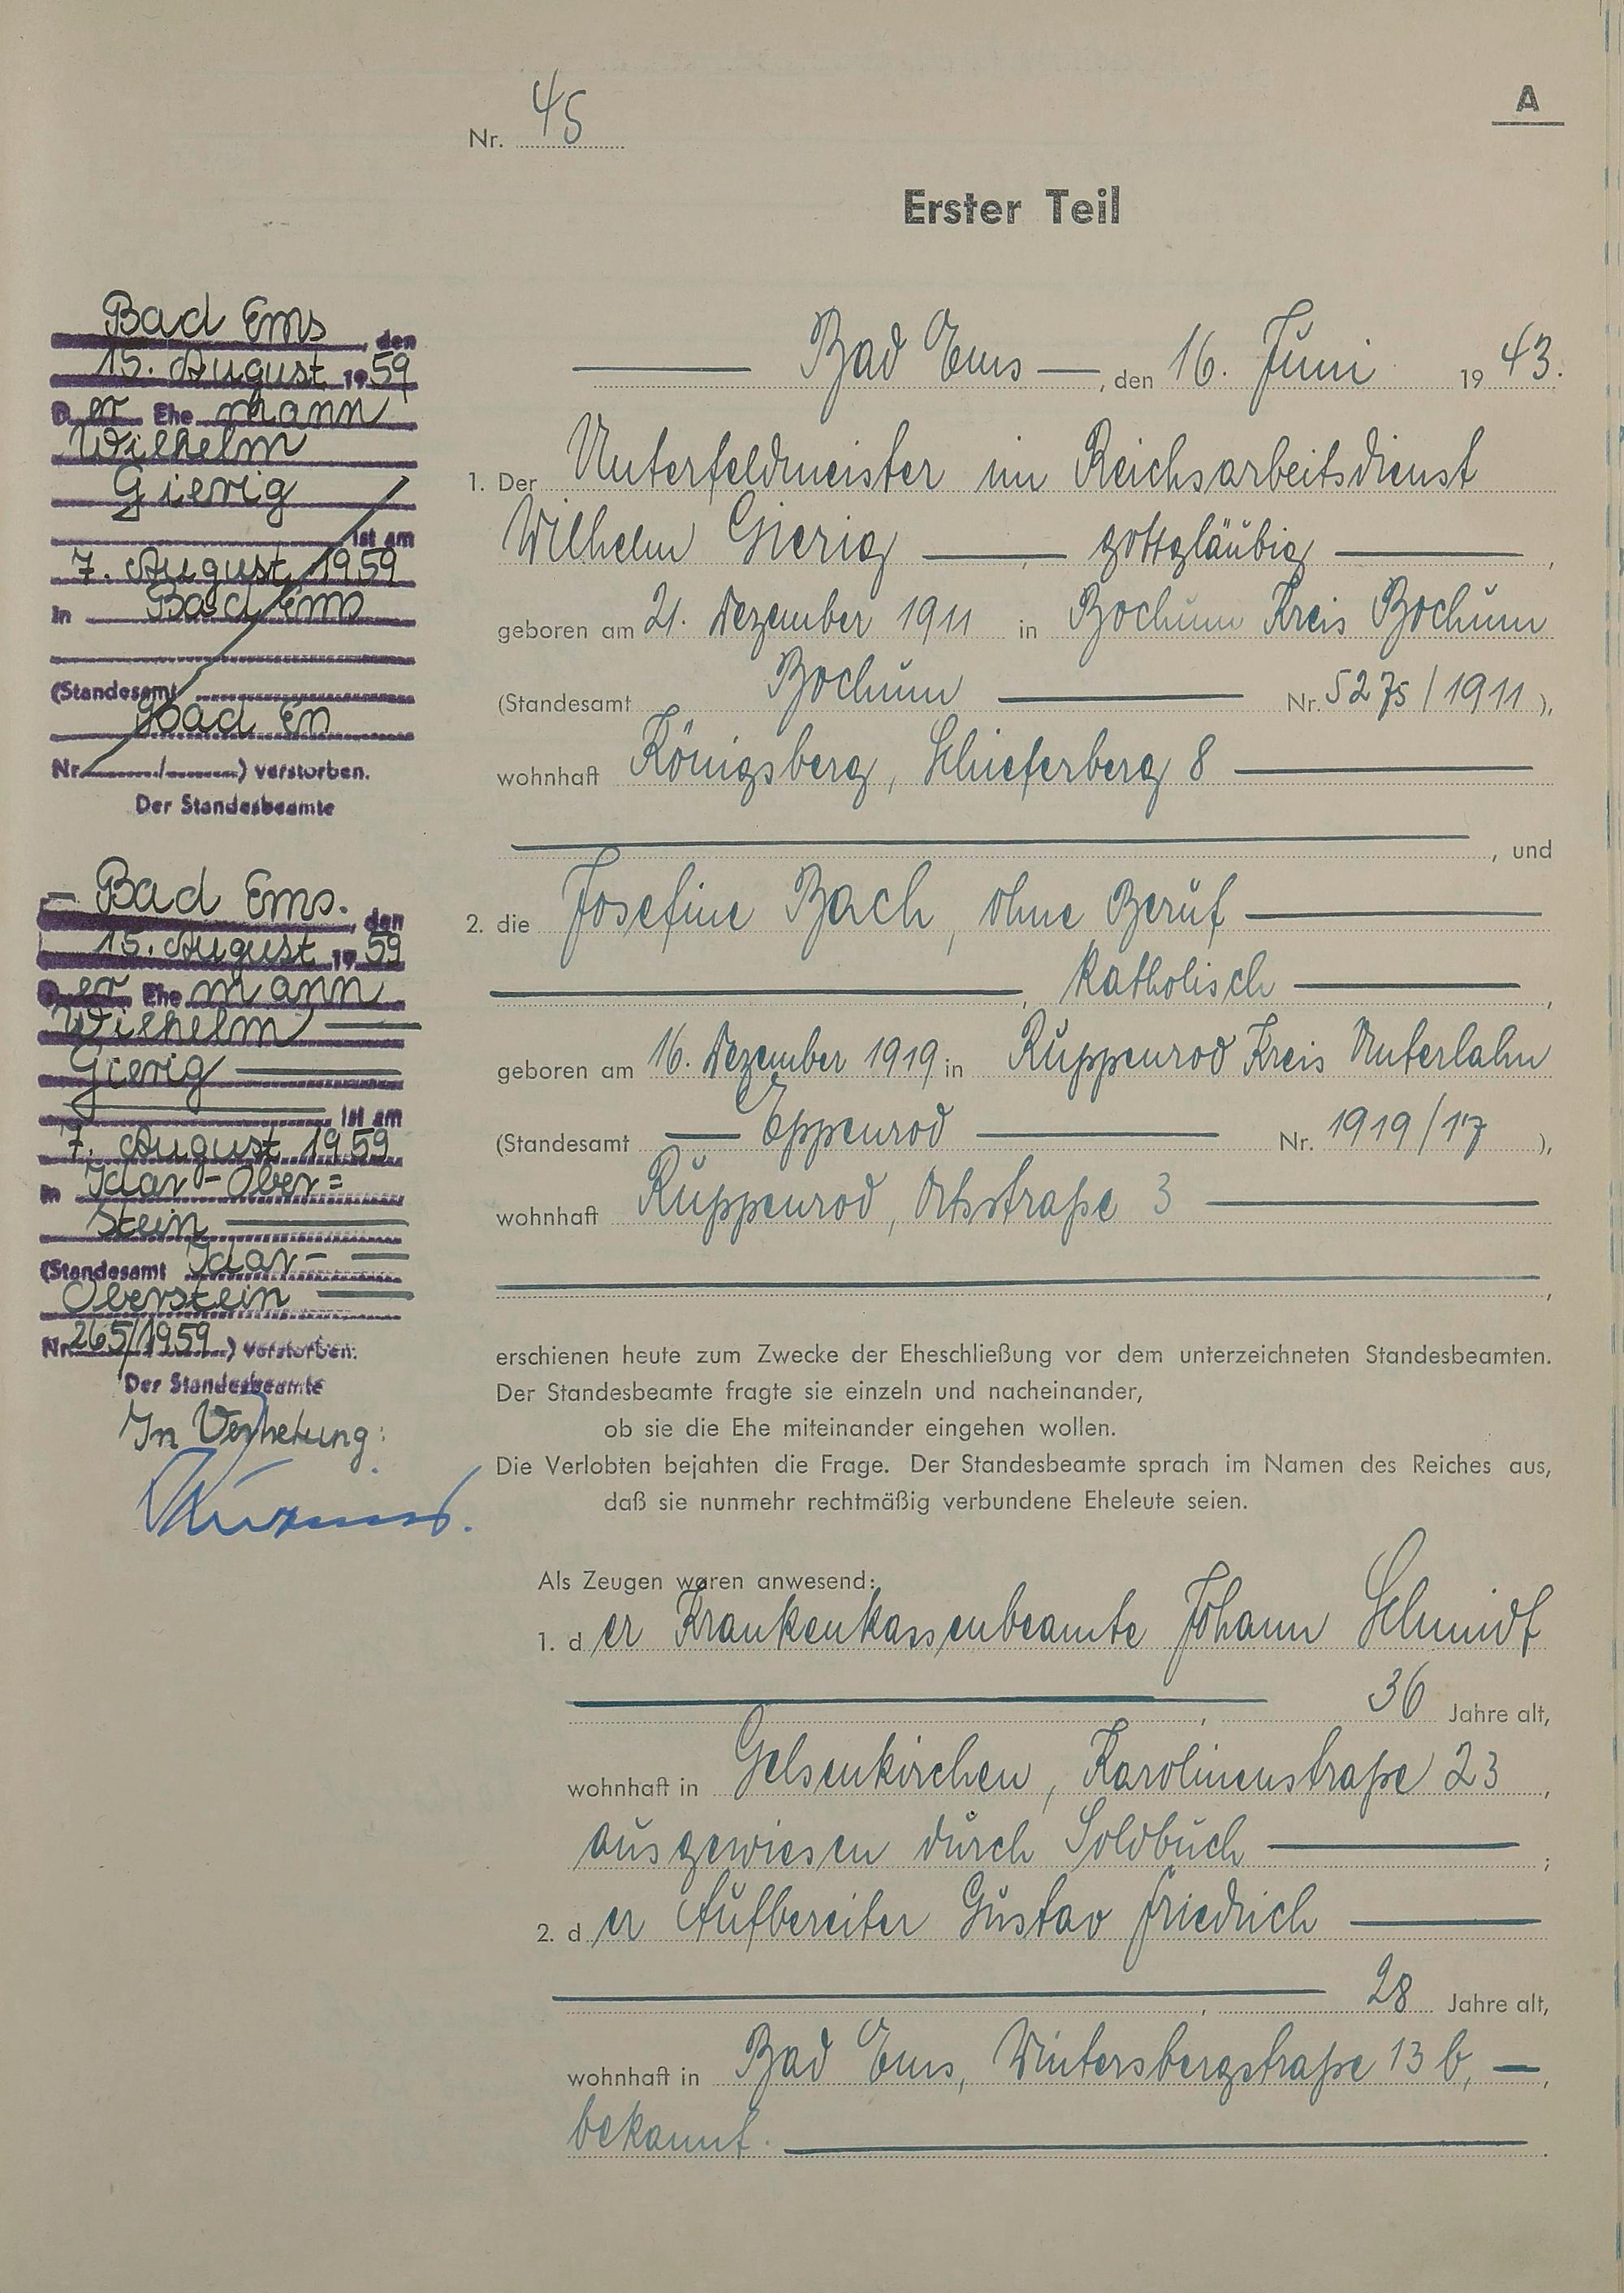 A
Nr. 45
Erster Teil
Bad Ems, den
15. August 1959
Der Ehe mann
Wilhelm
Gierig
ist am
7. August 1959
in Bad Ems
(Standesamt
Bad Em
Nr. / ) verstorben.
Der Standesbeamte
Bad Ems. , den
15. August 1959
Der Ehe mann
Wilhelm
Gierig
ist am
7. August 1959
in Idar-Ober=
stein
(Standesamt Idar-
Oberstein
Nr. 265/1959 ) verstorben.
Der Standesbeamte
In Vertretung:
Bad Ems, den 16. Juni 1943.
1. Der Unterfeldmeister im Reichsarbeitsdienst
Wilhelm Gierig, gottgläubig,
geboren am 21. Dezember 1911 in Bochum Kreis Bochum
(Standesamt Bochum Nr. 5275/1911 ),
wohnhaft Königsberg, Schieferberg 8
, und
2. die Josefine Bach, ohne Beruf
, katholisch,
geboren am 16. Dezember 1919 in Ruppenrod Kreis Unterlahn
(Standesamt Eppenrod Nr. 1919/17 ),
wohnhaft Ruppenrod, Ortsstraße 3
,
erschienen heute zum Zwecke der Eheschließung vor dem unterzeichneten Standesbeamten.
Der Standesbeamte fragte sie einzeln und nacheinander,
ob sie die Ehe miteinander eingehen wollen.
Die Verlobten bejahten die Frage. Der Standesbeamte sprach im Namen des Reiches aus,
daß sie nunmehr rechtmäßig verbundene Eheleute seien.
Als Zeugen waren anwesend:
1. der Krankenkassenbeamte Johann Schmidt
, 36 Jahre alt,
wohnhaft in Gelsenkirchen, Karolinenstraße 23,
ausgewiesen durch Soldbuch ;
2. der Aufbereiter Gustav Friedrich
, 28 Jahre alt,
wohnhaft in Bad Ems, Wintersbergstraße 13 b, ,
bekannt.